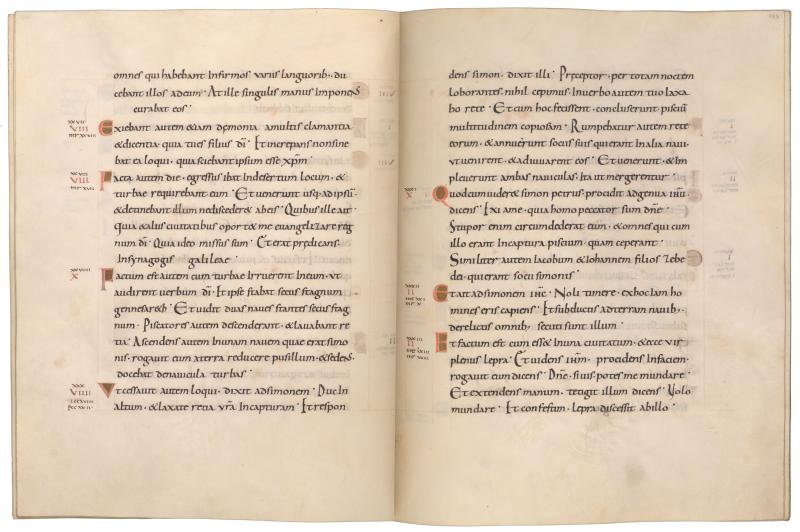 omnes qui habebant Infirmos variis languorib; du
cebant illos adeum. At ille singulis manus Imponens
curabat eos.
XXVII
VIII
Exiebant autem &iam demonia amultis clamantia
&dicentia, quia tu es filius dī. Et increpans non sine
bat ea loqui, quia sciebant ipsum esse xpm.
XXVIII
VIII
Facta autem die, egressus ibat Indesertum locum, &
turbae requirebant eum. Et venerunt usq; adipsū,
&detinebant illum nediscederet abeis. Quibus ille ait.
quia &aliis civitatibus oport& me euangelizare reg
num dī. Quia ideo missus sum. Et erat predicans.
Insynagogis galileae.
XXVIIII
X
Factum est autem cum turbae Irruerent Ineum, ut
audirent verbum dī. Et ipse stabat secus stagnum
gennesareth. Et vidit duas naves stantes secus stag
num. Piscatores autem descenderant, &lavabant re
tia. Ascendens autem Inunam navem quae erat simo
nis, rogavit eum aterra reducere pusillum, &sedens
docebat denavicula turbas.
XXX
VIIII
Ut cessavit autem loqui, dixit adsimonem. Duc In
altum, &laxate retia vrā Incapturam. Et respon
dens simon, dixit illi. Preceptor, per totam noctem
laborantes, nihil cepimus. Inverbo autem tuo laxa
bo rete. Et cum hoc fecissent, concluserunt pisciū
multitudinem copiosam. Rumpebatur autem rete
eorum, &annuerunt sociis suis qui erant Inalia navi,
ut venirent, &adiuvarent eos. Et venerunt, &Im
pleverunt ambas naviculas, Ita ut mergerentur.
XXXI
X
Quod cum vider& simon petrus, procidit adgenua ihū.
dicens. Exi ame, quia homo peccator sum dñe.
Stupor enim circumdederat eum, &omnes qui cum
illo erant Incaptura piscium, quam ceperant.
Similiter autem Iacobum &Iohannem filios zebe
dei, qui erant socii simonis.
XXXII
II
Et ait adsimonem ihc. Noli timere, exhoc Iam ho
mines eris capiens. Et subductis adterram navib;,
derelictis omnib; secuti sunt illum.
XXXIII
II
Et factum est cum ess& Inuna civitatum, &ecce vir
plenus lepra. Et videns ihm, procidens Infaciem,
rogavit eum dicens. Dñe, si vis, potes me mundare.
Et extendens manum, tetigit illum dicens. Volo
mundare. Et confestim, lepra discessit abillo.